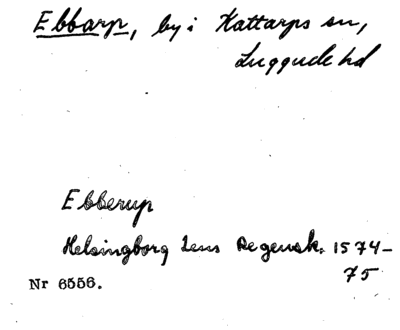 Ebbarp, by i Kattarps sn,
Luggude hd
Ebberup
Helsingborg Lens Regensk. 1574–
75
Nr 6556.